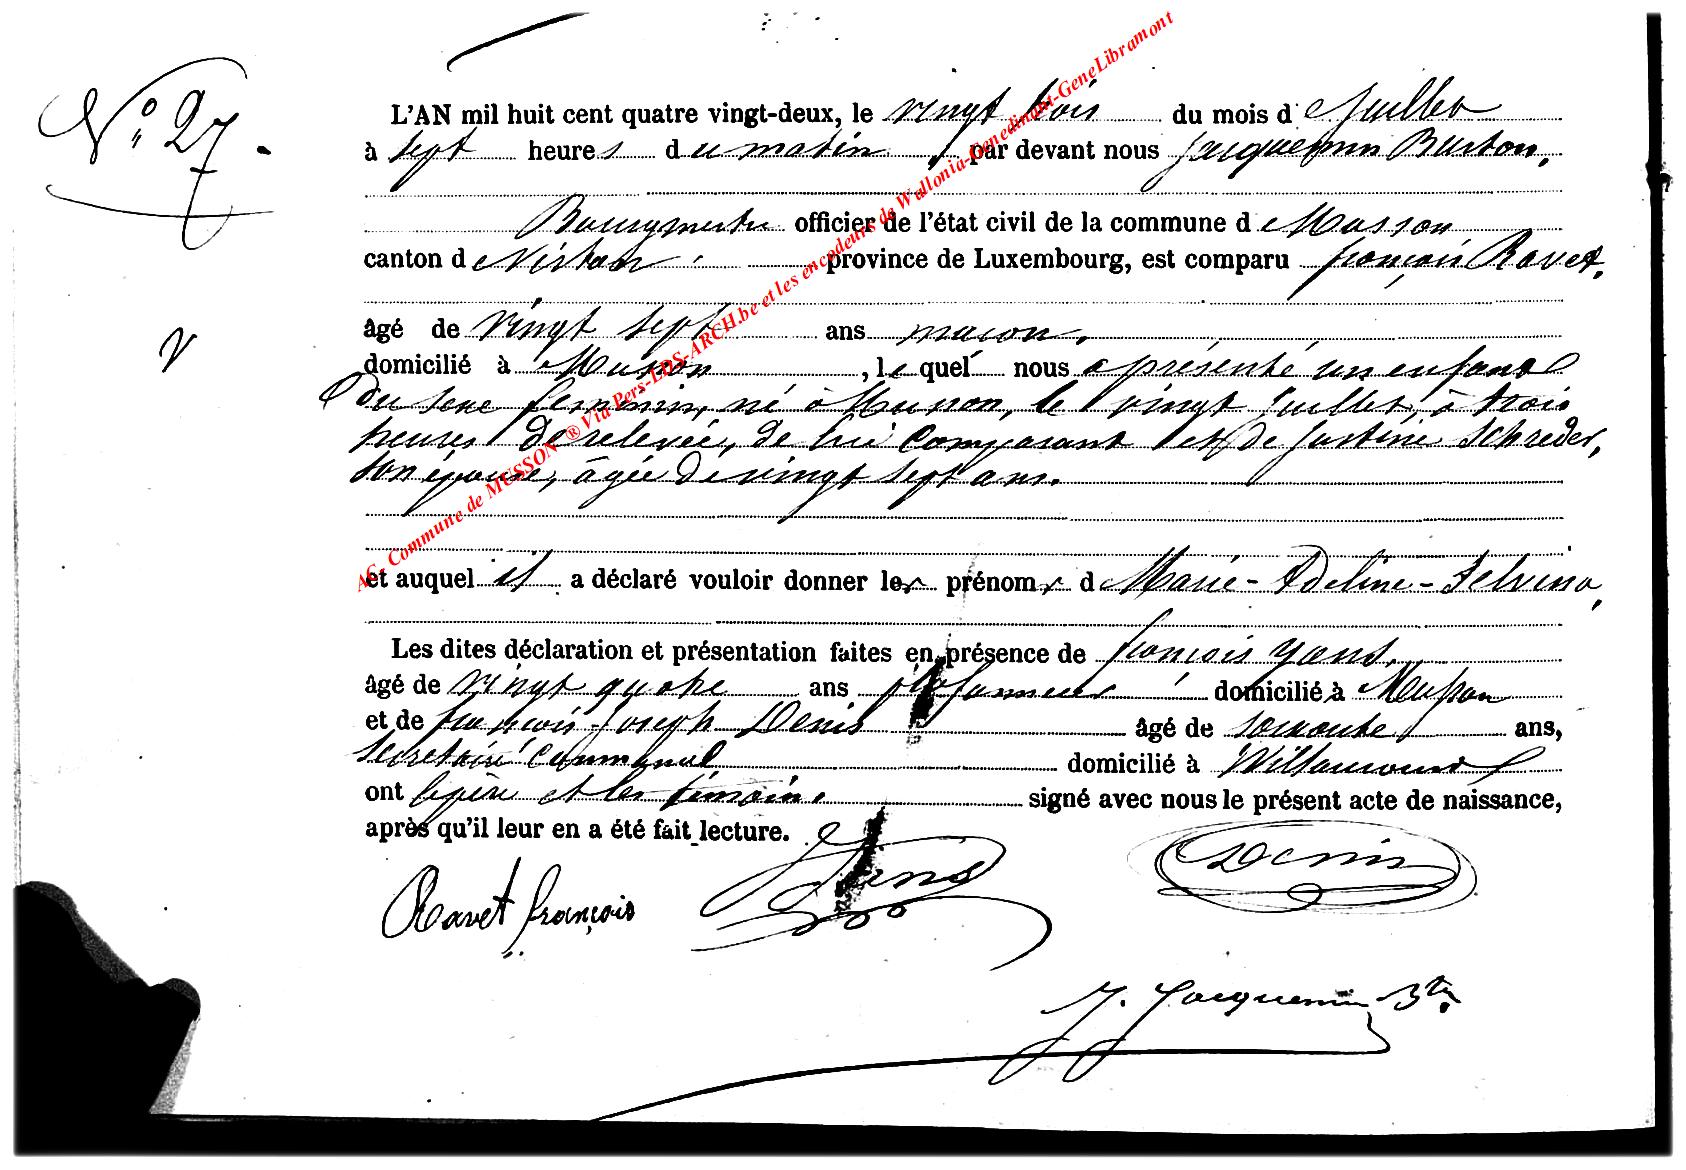 N° 27.
L'AN mil huit cent quatre vingt-deux, le vingt trois du mois de Juillet
à sept heures du matin, par devant nous Jacquemin Burton,
Bourgmestre officier de l'état civil de la commune de Musson
canton de Virton province de Luxembourg, est comparu françois Ravet,
âgé de vingt sept ans macon,
domicilié à Musson, lequel nous a présenté un enfant
du sexe feminin, né à Musson, le vingt Juillet, à trois
heures de relevée, de lui comparant et de Justine Schreder,
son épouse, âgée de vingt sept ans.
et auquel il a déclaré vouloir donner les prénoms de Marie-Adeline-Selvina,
Les dites déclaration et présentation faites en présence de françois Yans,
âgé de vingt quatre ans domicilié à Musson
et de françois-Joseph Denis âgé de soixante ans,
secretaire communal domicilié à Willancourt
ont le père et les témoins signé avec nous le présent acte de naissance,
après qu'il leur en a été fait lecture.
Ravet françois Yans Denis
J. Jacquemin Btn
AG. Commune de MUSSON ® Via Pers-LDS-ARCH.be et les encodeurs de Wallonia-Genedinant-GeneLibramont